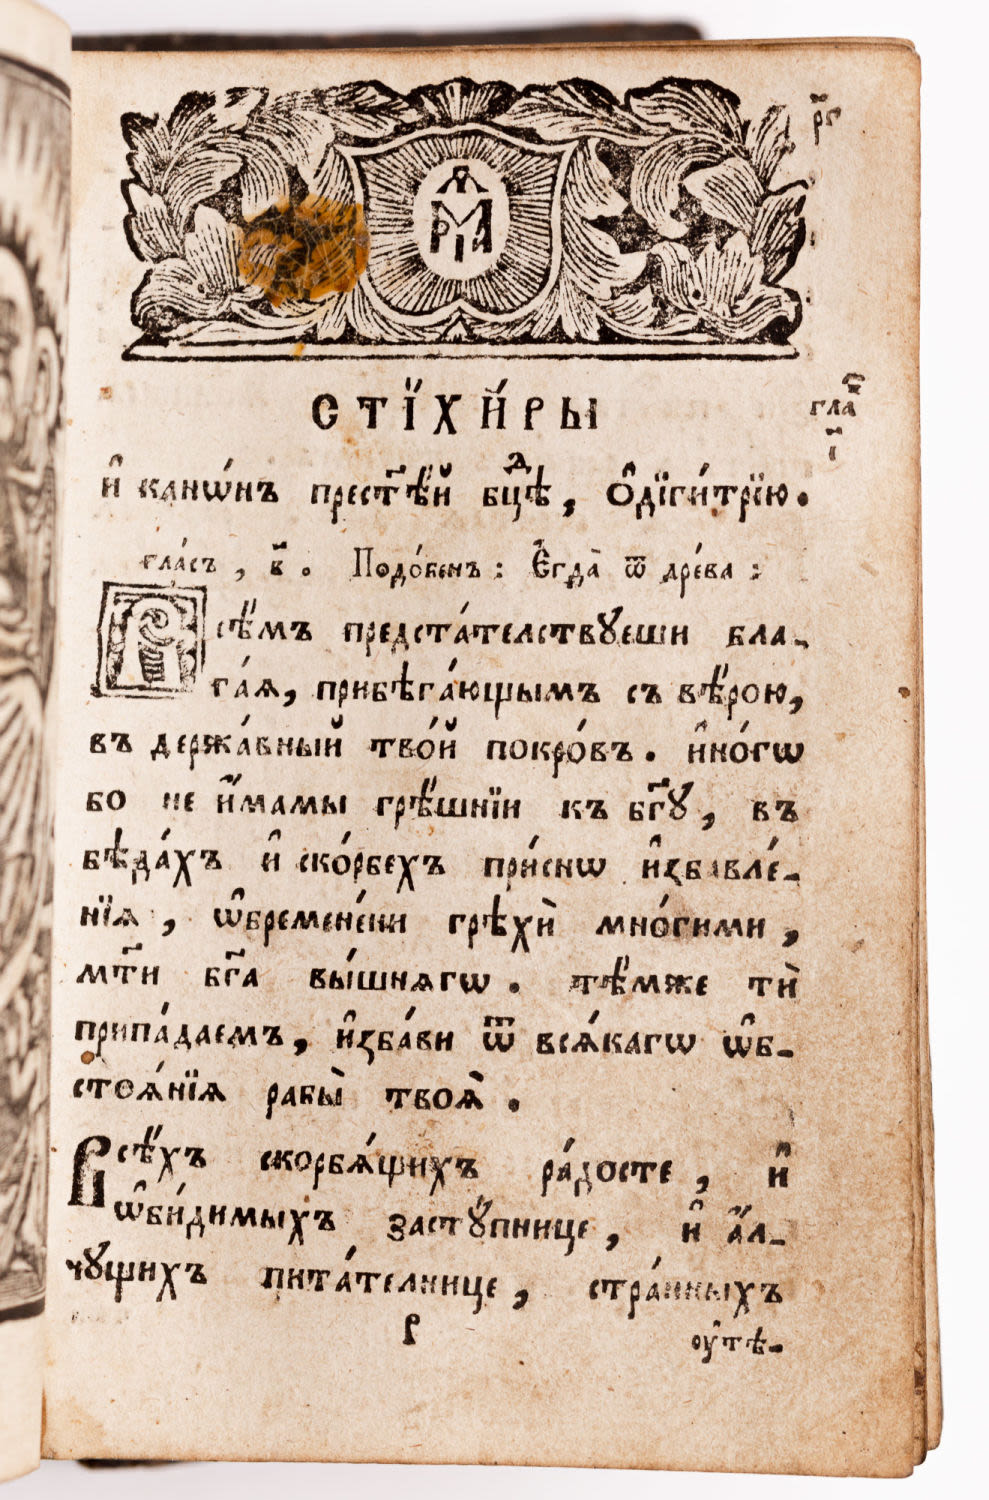 МАРІА
р҃г
СТІХИ́РЫ
гла́с
і҃
и҆ канѡ́нъ прест҃ѣ́й бцⷣѣ, Ѻ҆дїги́трїю.
гла́съ, в҃. Подо́бенъ: Є҆гда̀ ѿ дре́ва:
Всѣ́мъ предста́телствꙋеши бла-
га́ѧ, прибѣга́ющымъ съ вѣ́рою,
въ держа́вный тво́й покро́въ. и҆но́гѡ
бо не и҆́мамы грѣ́шнїи къ бг҃ꙋ, въ
бѣда́хъ и҆ ско́рбехъ при́снѡ и҆збавле́-
нїѧ, ѡ҆бремене́нни грѣхѝ мно́гими,
мт҃и бг҃а вы́шнѧгѡ. тѣ́мже тѝ
припа́даемъ, и҆зба́ви ѿ всѧ́кагѡ ѡ҆б-
стоѧ́нїѧ рабы̀ твоѧ̀.
Всѣ́хъ скорбѧ́щихъ ра́досте, и҆
ѡ҆би́димыхъ застꙋ́пнице, и҆ а҆́л-
чꙋщихъ пита́телнице, стра́нныхъ
р
оу҆тѣ-